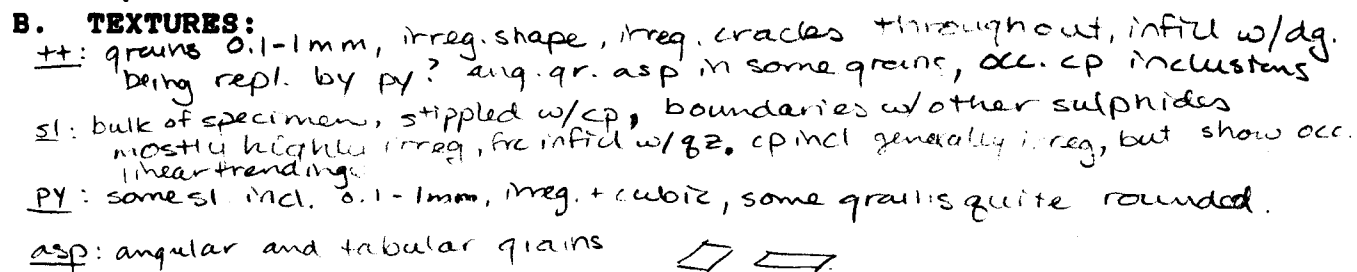 B. TEXTURES:
tt: grains 0.1-1mm, irreg. shape, irreg. cracks throughout, infill w/dg.
being repl. by py? ang. gr. asp in some grains, occ. cp inclusions
sl: bulk of specimen, stippled w/cp, boundaries w/other sulphides
mostly highly irreg, frc infill w/qz. cp incl generally irreg, but show occ.
linear trending.
py: some sl incl. 0.1-1mm, irreg. + cubic, some grains quite rounded.
asp: angular and tabular grains